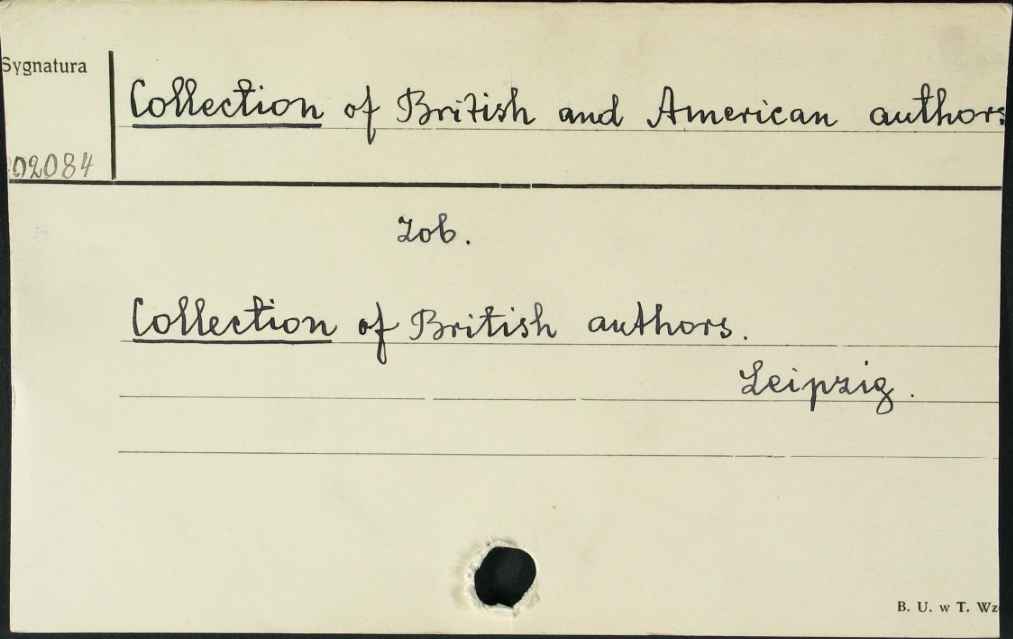 Sygnatura
Collection of British and American authors
02084
Zob.
Collection of British authors.
Leipzig.
B. U. w T. Wz